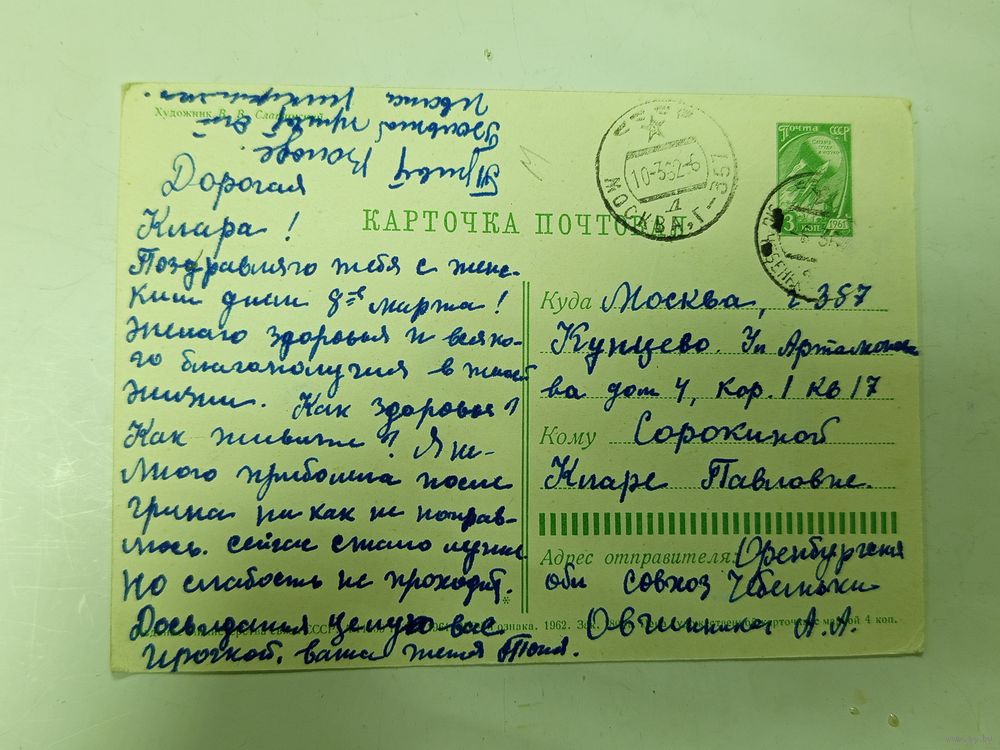 Художник В. В.
Привет Володе.
Большой привет
Дорогая
Клара!
Поздравляю тебя с женс-
ким днем 8=е марта!
Желаю здоровья и всяко-
го благополучия в
жизни. Как здоровье?
Как живети? Я не-
много приболела после
грипа ни как не поправ-
люсь. сейчас стало лучше
но слабость не проходит.
Досвидания целую вас
ваша тетя Тоня.
СССР
10-3 62-6
Д
МОСКВА, Г-357
ПОЧТА СССР
3 КОП
1961
КАРТОЧКА ПОЧТОВАЯ
Куда Москва, г 357
Кунцево. Ул Артамоно
ва дом 4, кор. 1 Кв 17
Кому Сорокиной
Кларе Павловне.
Адрес отправителя: Оренбургская
обл совхоз Чебеньки
А. А.
1962. Зак. маркой 4 коп.